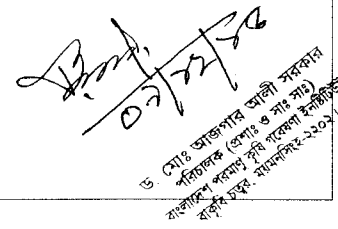 ০৭/১২/২৫
ড. মোঃ আজগার আলী সরকার
পরিচালক (প্রশাঃ ও সাঃ সাঃ)
বাংলাদেশ পরমাণু কৃষি গবেষণা ইনস্টিটিউট
বাকৃবি চত্বর, ময়মনসিংহ-২২০২।